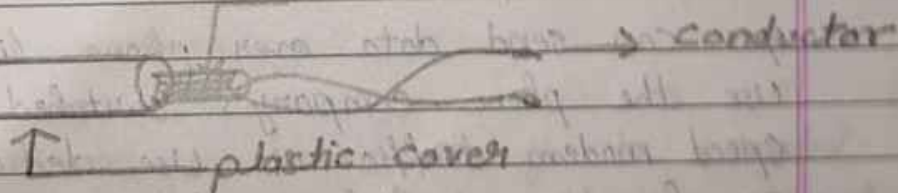 conductor
plastic cover